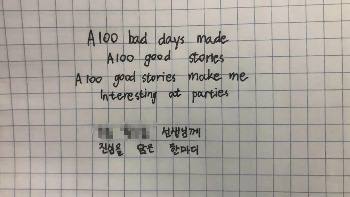 A 100 bad days made
A 100 good stories
A 100 good stories make me
Interesting at parties
선생님께
진심을 담은 한마디